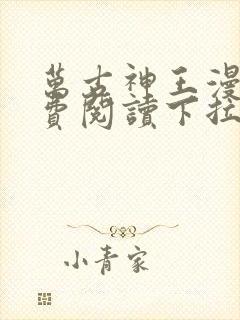 萬古神王漫
費閱讀下拉
小青家